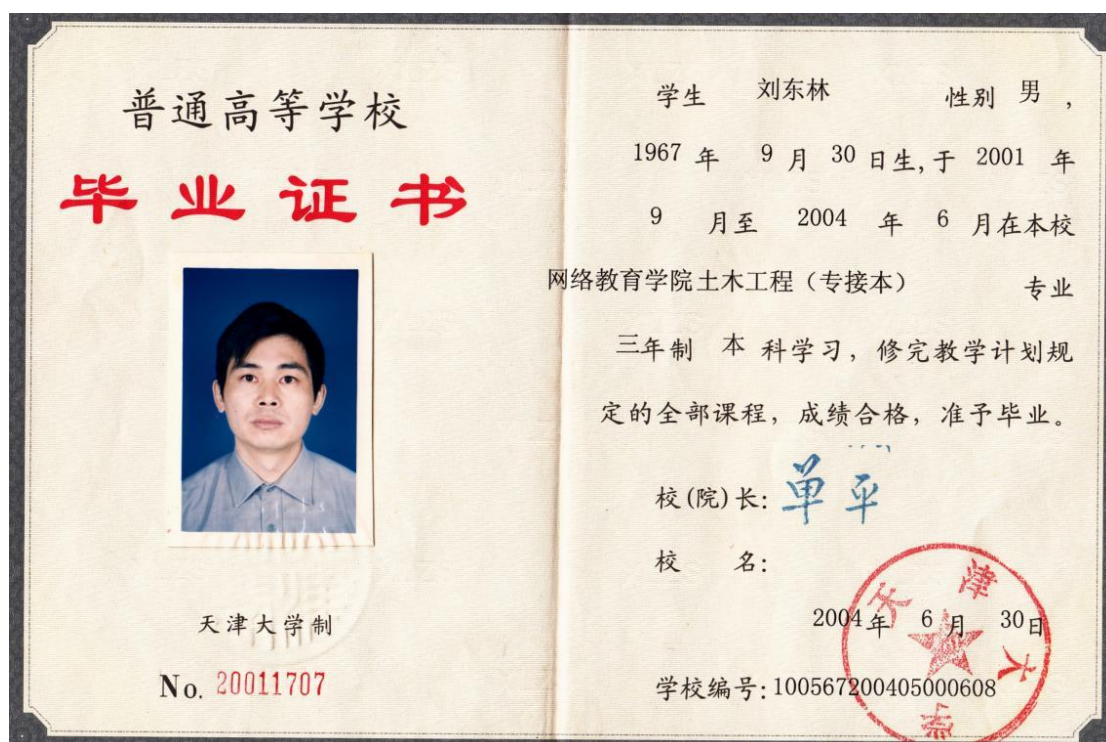 普通高等学校
毕业证书
天津大学制
No. 20011707
学生 刘东林 性别 男，
1967 年 9 月 30 日生，于 2001 年
9 月至 2004 年 6 月在本校
网络教育学院土木工程（专接本） 专业
三年制 本 科学习，修完教学计划规
定的全部课程，成绩合格，准予毕业。
校(院)长：单平
校 名：
天津大学
2004年 6月 30日
学校编号：100567200405000608